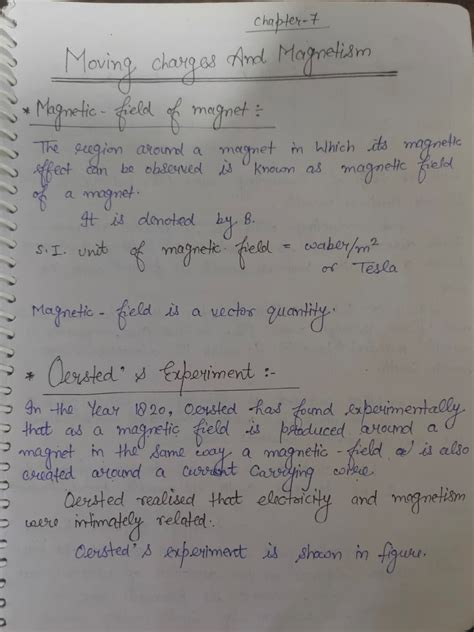 Chapter-7
Moving charges And Magnetism
* Magnetic-field of magnet :-
The region around a magnet in which its magnetic
effect can be observed is known as magnetic field
of a magnet.
It is denoted by B.
S.I. unit of magnetic field = waber/m²
or Tesla
Magnetic-field is a vector quantity.
* Oersted's Experiment :-
In the Year 1820, Oersted has found experimentally
that as a magnetic field is produced around a
magnet in the same way a magnetic-field is also
created around a current carrying wire.
Oersted realised that electricity and magnetism
were intimately related.
Oersted's experiment is shown in figure.